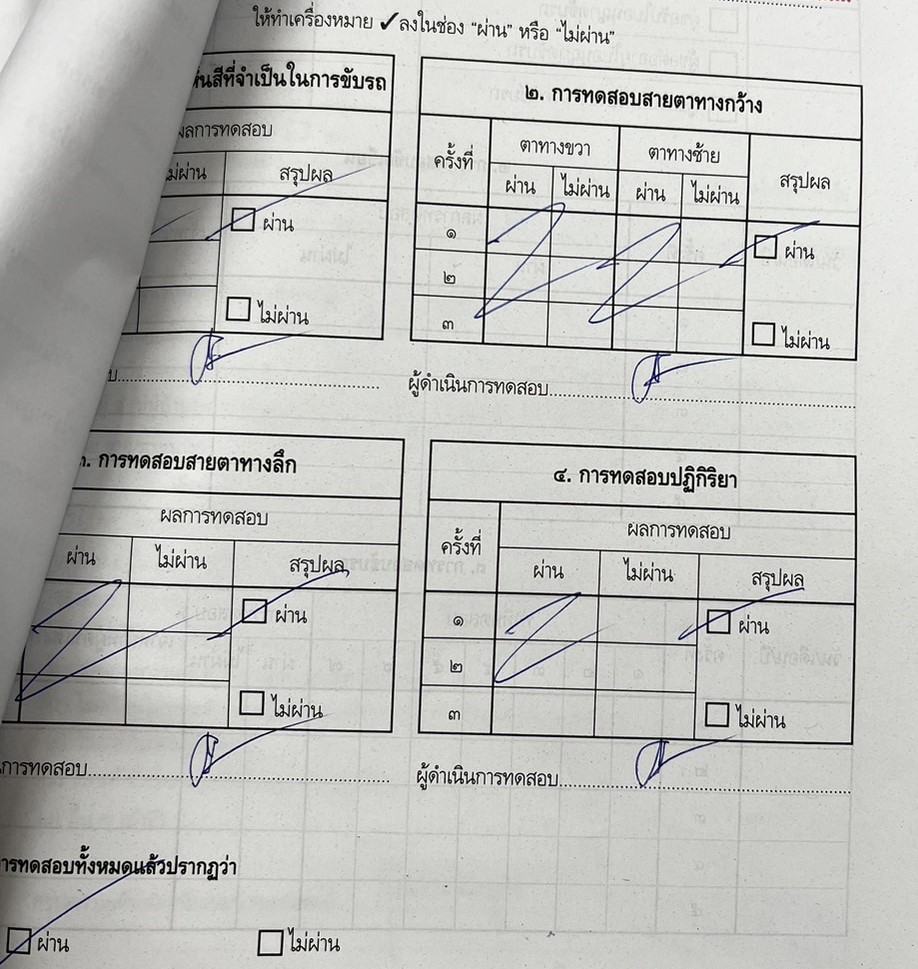 ให้ทำเครื่องหมาย ✓ ลงในช่อง “ผ่าน” หรือ “ไม่ผ่าน”
สีที่จำเป็นในการขับรถ
ผลการทดสอบ
ไม่ผ่าน สรุปผล
ผ่าน
ไม่ผ่าน
๒. การทดสอบสายตาทางกว้าง
ครั้งที่ ตาทางขวา ตาทางซ้าย สรุปผล
ผ่าน ไม่ผ่าน ผ่าน ไม่ผ่าน
๑ ผ่าน
๒
๓ ไม่ผ่าน
ผู้ดำเนินการทดสอบ
๓. การทดสอบสายตาทางลึก
ผลการทดสอบ
ผ่าน ไม่ผ่าน สรุปผล
ผ่าน
ไม่ผ่าน
การทดสอบ
๔. การทดสอบปฏิกิริยา
ครั้งที่ ผลการทดสอบ
ผ่าน ไม่ผ่าน สรุปผล
๑ ผ่าน
๒
๓ ไม่ผ่าน
ผู้ดำเนินการทดสอบ
การทดสอบทั้งหมดแล้วปรากฏว่า
ผ่าน ไม่ผ่าน